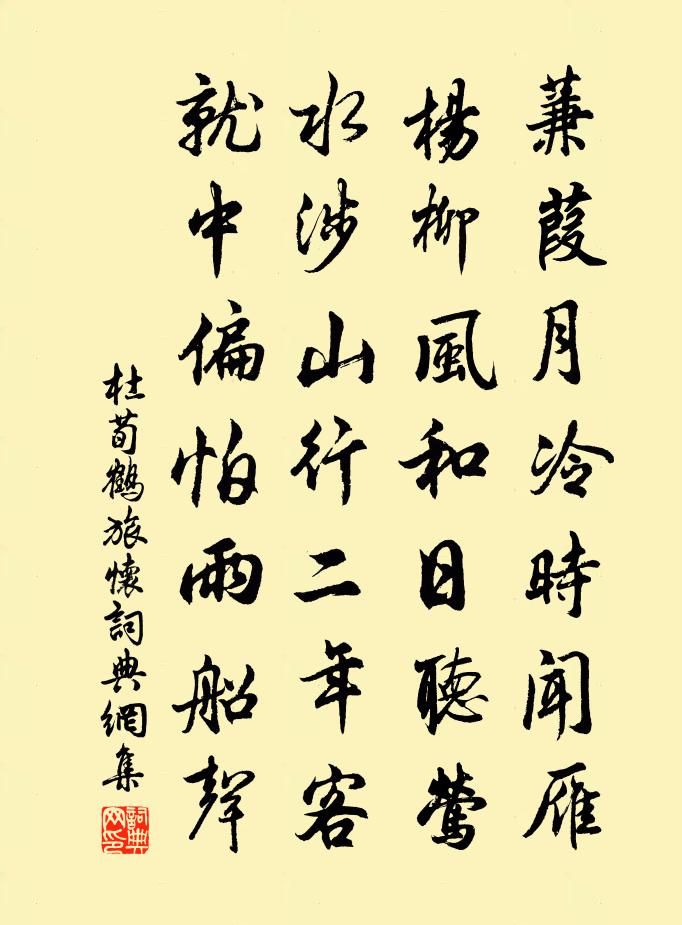 蒹葭月冷時聞雁
楊柳風和日聽鶯
水涉山行二年客
就中偏怕雨船聲
杜荀鶴旅懷詞典網集
詞典
网印